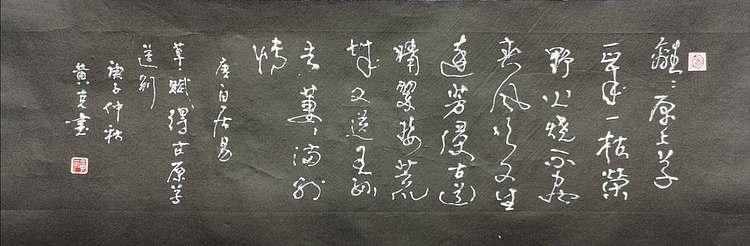 離〻原上草
一歲一枯榮
野火燒不盡
春風吹又生
遠芳侵古道
晴翠接荒
城又送王孫
去萋〻滿別
情
唐白居易
草賦得古原草
送別
庚子仲秋
黄 書